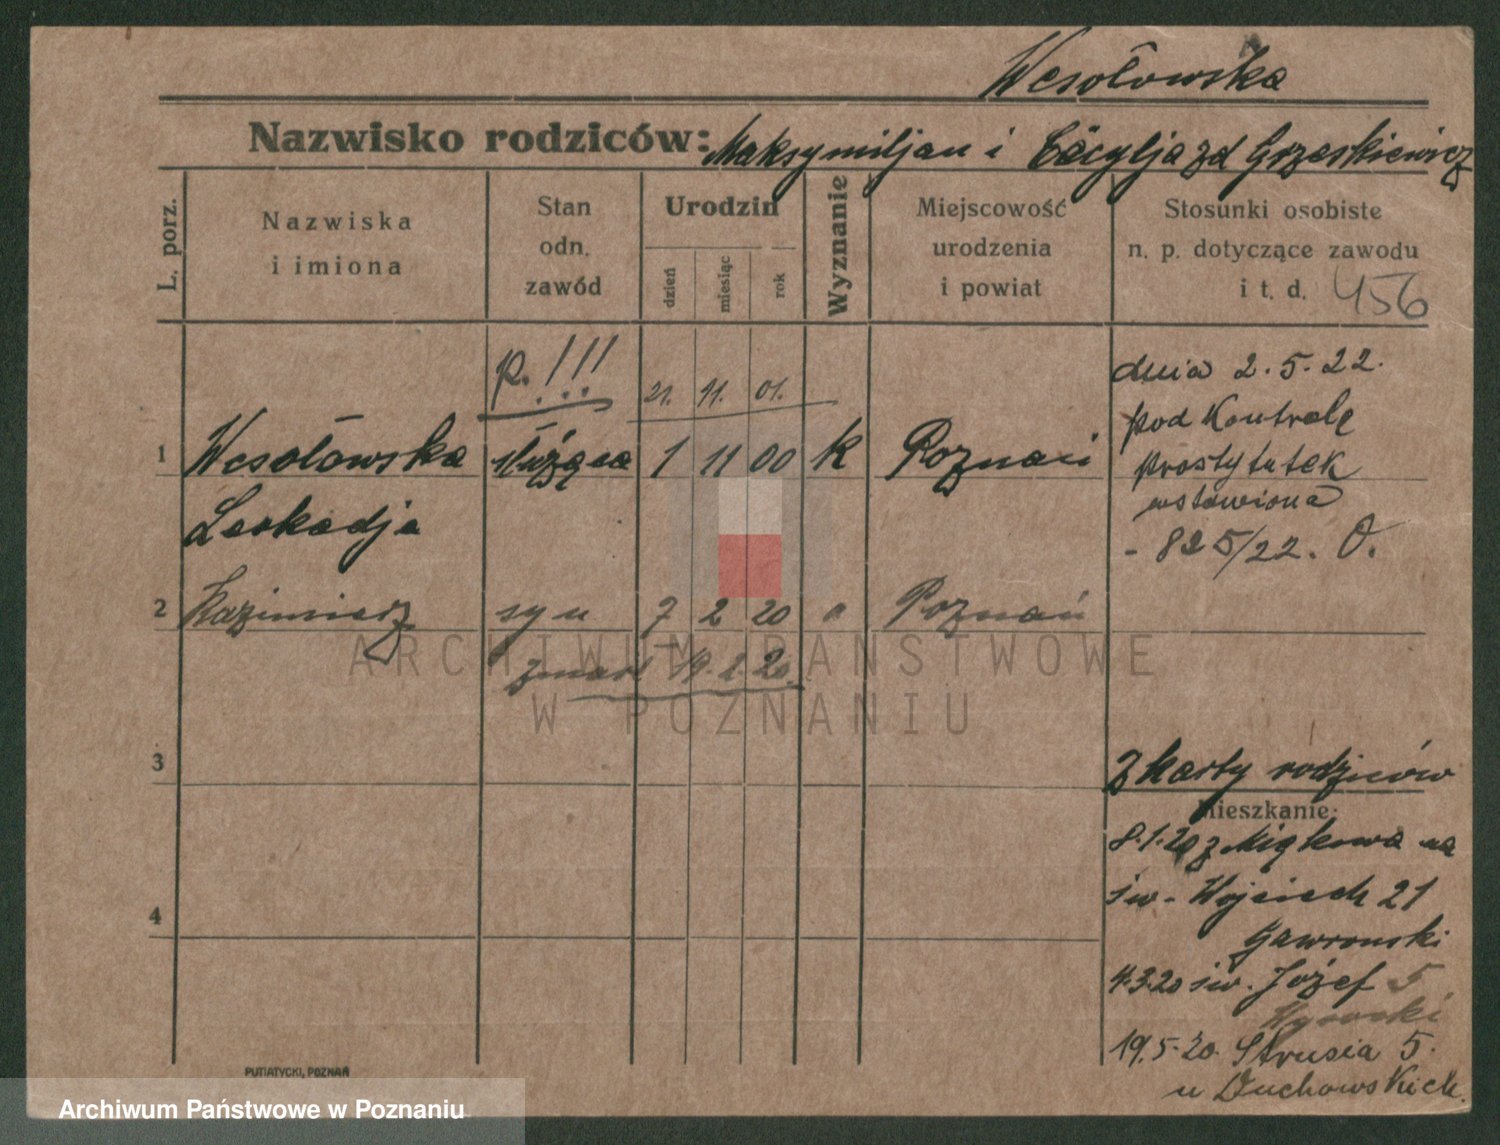 Wesołowska
Nazwisko rodziców: Maksymiljan i Cäcylja zd Grzeskiewicz
L. porz.
Nazwiska
i imiona
Stan
odn.
zawód
Urodzin
dzień
miesiąc
rok
Wyznanie
Miejscowość
urodzenia
i powiat
Stosunki osobiste
n. p. dotyczące zawodu
i t. d. 456
p. !!!
21. 11. 01.
1 Wesołowska służąca 1 11 00 k Poznań
Leokadja
dnia 2.5.22.
pod Kontrolę
prostytutek
wstawiona
- 825/22. O.
2 Kazimierz syn 7 2 20 " Poznań
zmarł 19.2.20.
3
z karty rodziców
Mieszkanie:
8.1.20 z Miąkowa na
św. Wojciech 21
Gawronski
4
4.3.20 św. Józef 5
19.5.20. Strusia 5.
u Duchowskich.
PUTIATYCKI, POZNAŃ
ARCHIWUM PAŃSTWOWE
W POZNANIU
Archiwum Państwowe w Poznaniu